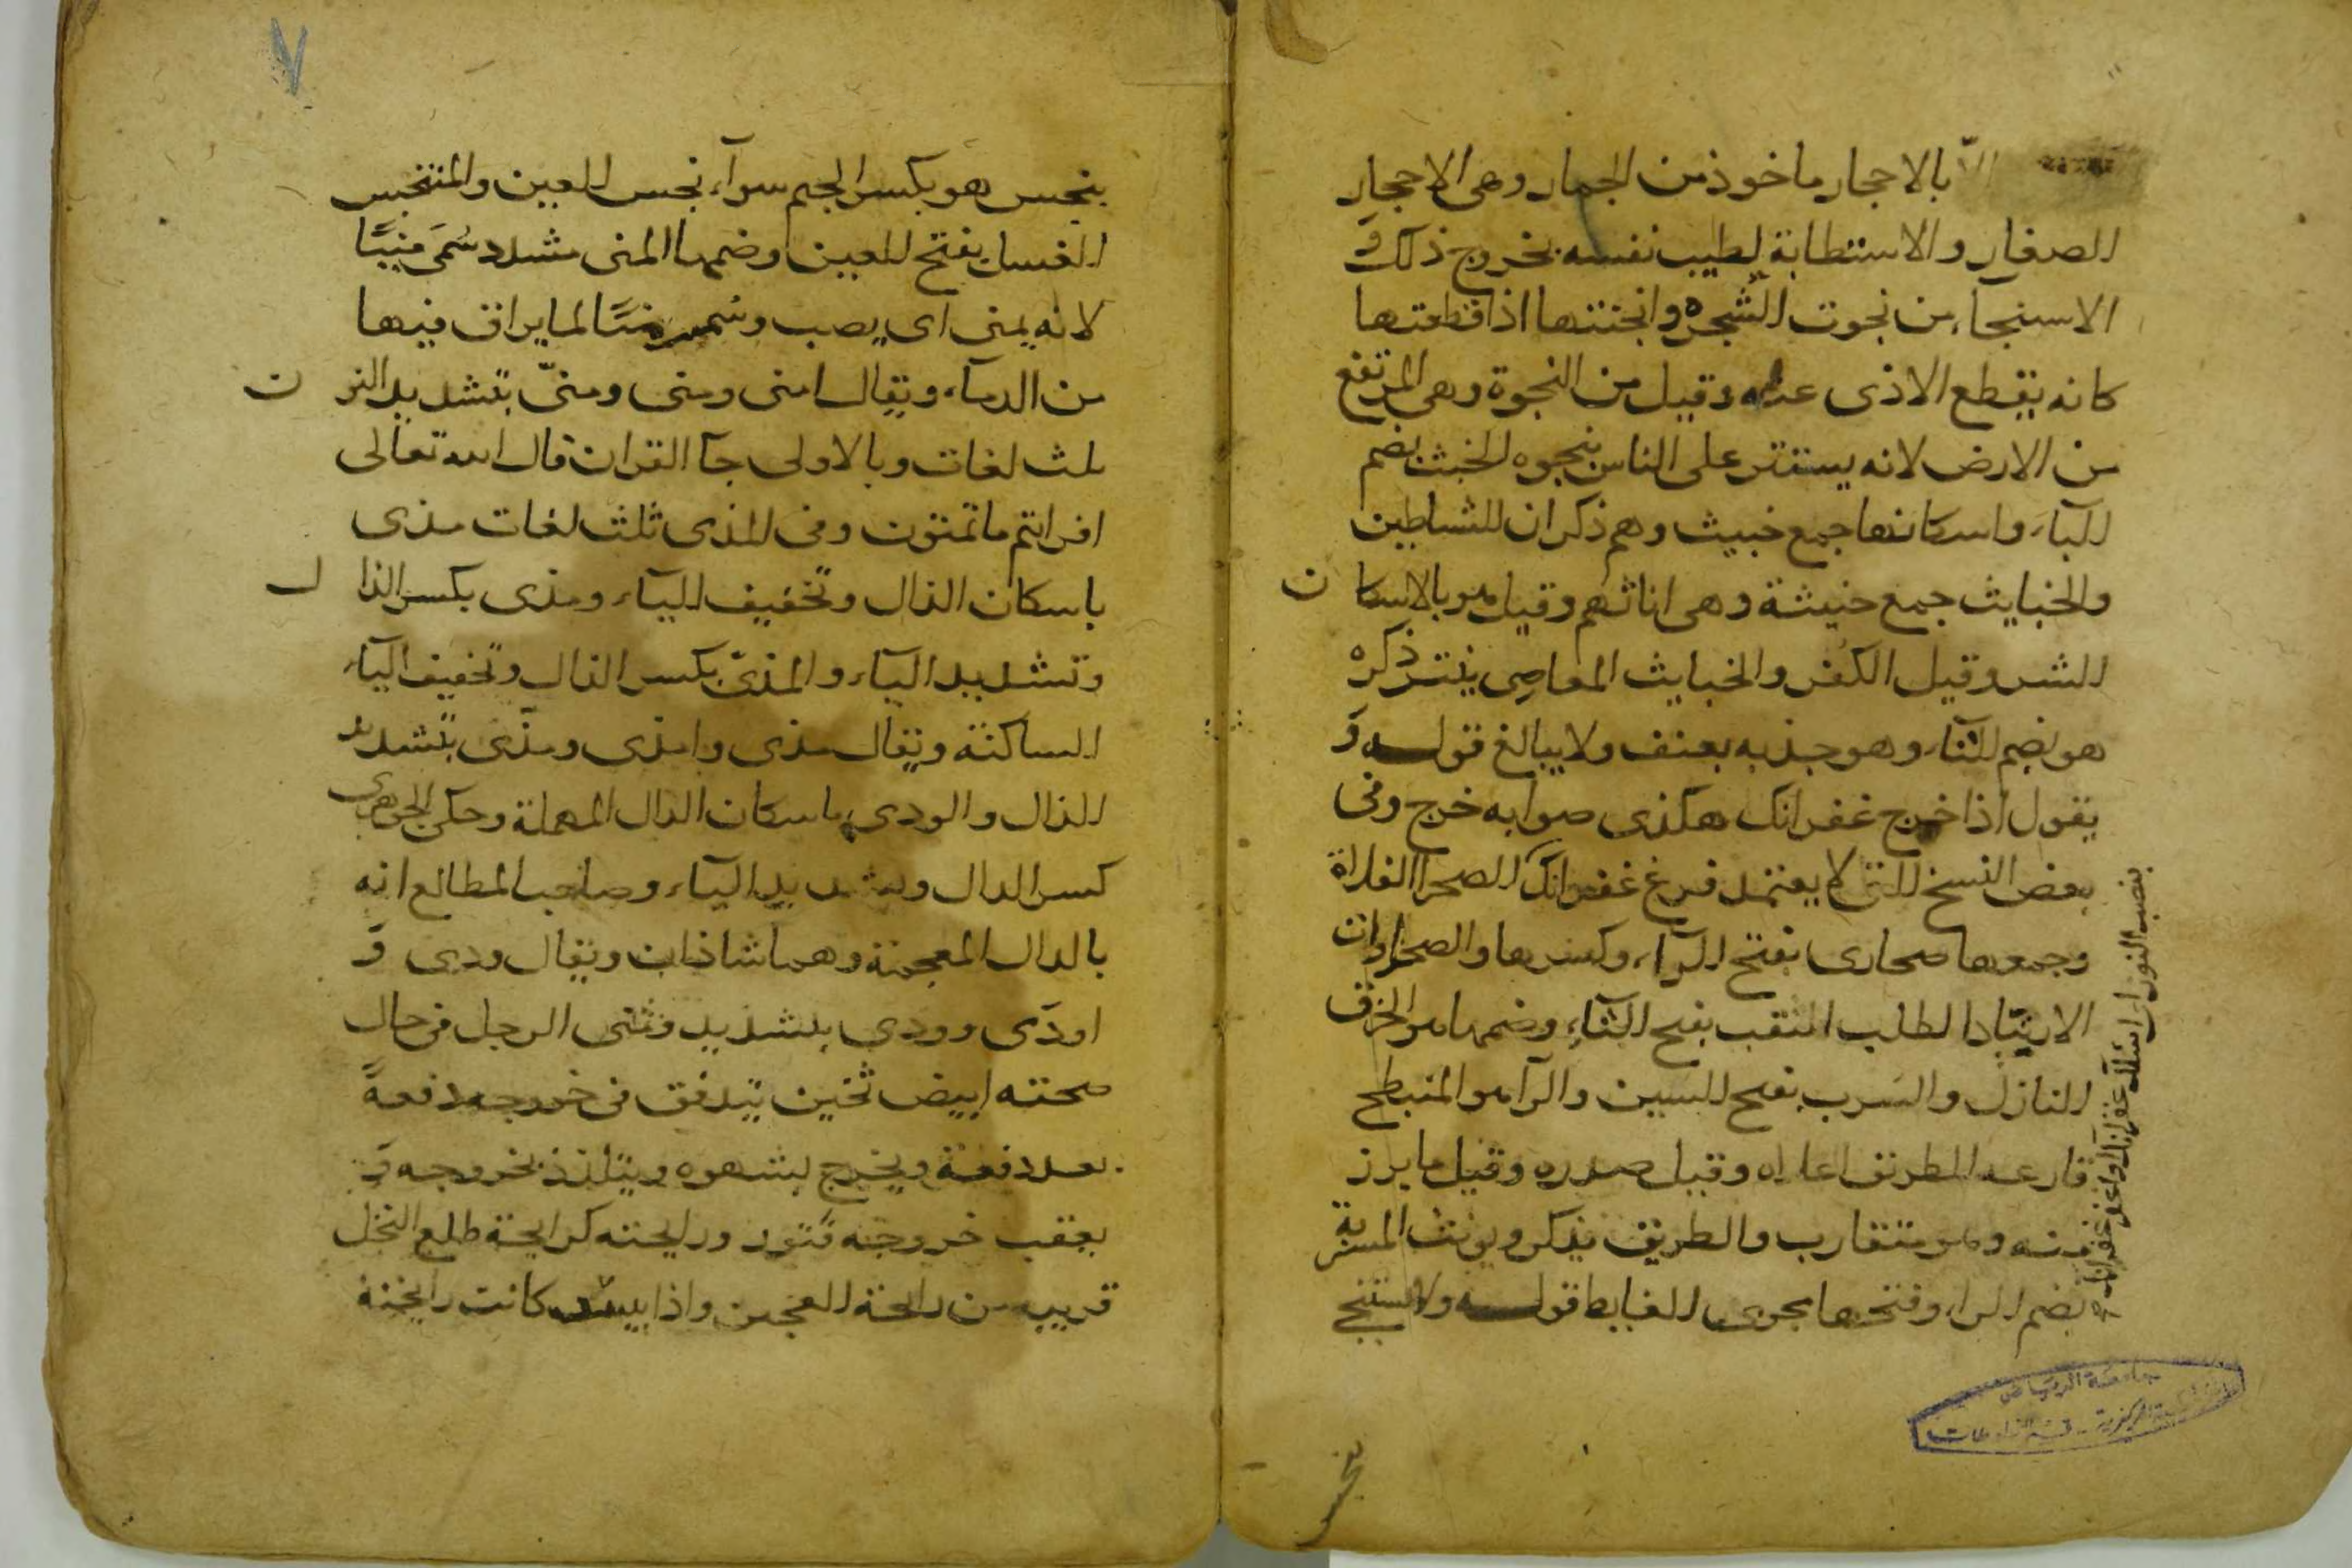 الا بالاحجار ماخوذ من الجمار وهى الاحجار
الصغار والاستطابة لطيب نفسه بخروج ذلك و
الاستنجاء من نجوت الشجره وانجيتها اذا قطعتها
كانه يقطع الاذى عنه وقيل من النجوة وهى المرتفع
من الارض لانه يستتر على الناس بنجوه الخبث بضم
البآء واسكانها جمع خبيث وهم ذكران الشياطين
والخبايث جمع خبيثة وهى اناثهم وقيل هو بالاسكان
الشر وقيل الكفر والخبايث المعاصى ينتر ذكره
هو بضم التآء وهو جذبه بعنف ولا يبالغ قوله و
يقول اذا خرج غفرانك هكذى صوابه خرج وفى
بعض النسخ التى لا يعتمد فرغ غفرانك الصحرا الفلاة
وجمعها صحارى بفتح الرآء وكسرها والصحراوات
الارتياد الطلب الثقب بفتح الثآء وضمها هو الخرق
النازل والسرب بفتح السين والرآ هو المنبطح
قارعه الطريق اعلاه وقيل صدره وقيل ما برز
منه وهو متقارب والطريق يذكر ويونث المسربة
بضم الراء وفتحها مجرى الغايط قوله ولا يستنجى
بنصب النون اى اسالك غفرانك او اغفر غفرانك
بنجس
جامعة الرياض
٧
بنجس هو بكسر الجيم سوآء نجس العين والمتنجس
الغسل بفتح الغين وضمها المنى مشدد سُمى منيًّا
لانه يمنى اى يصب وسمى منى لما يراق فيها
من الدمآء ويقال امنى ومنى ومنّى بتشديد النون
ثلث لغات وبالاولى جآ القران قال الله تعالى
افرايتم ما تمنون وفى المذى ثلث لغات مذى
باسكان الذال وتخفيف اليآء ومذى بكسر الذال
وتشديد اليآء والمذى بكسر الذال وتخفيف اليآء
الساكنة ويقال مذى وامذى ومذّى بتشديد
الذال والودى باسكان الدال المهملة وحكى الجوهرى
كسر الدال وتشديد اليآء وصاحب المطالع انه
بالدال المعجمة وهما شاذان ويقال ودى و
اودى وودى بتشديد ومنى الرجل فى حال
صحته ابيض ثخين يتدفق فى خروجه دفعةً
بعد دفعة ويخرج بشهوه ويتلذذ بخروجه و
يعقب خروجه فتور ورايحته كرايحة طلع النخل
قريبه من رايحة العجين واذا يبس كانت رايحته